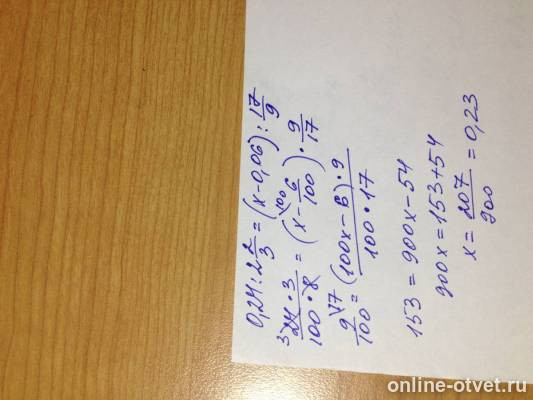 0,24:2 2/3 = (x-0,06): 17/9
24·3/100·8 = (x - 6/100)·9/17
9/100 = (100x-6)·9/100·17
153 = 900x-54
900x = 153+54
x = 207/900 = 0,23
online-otvet.ru